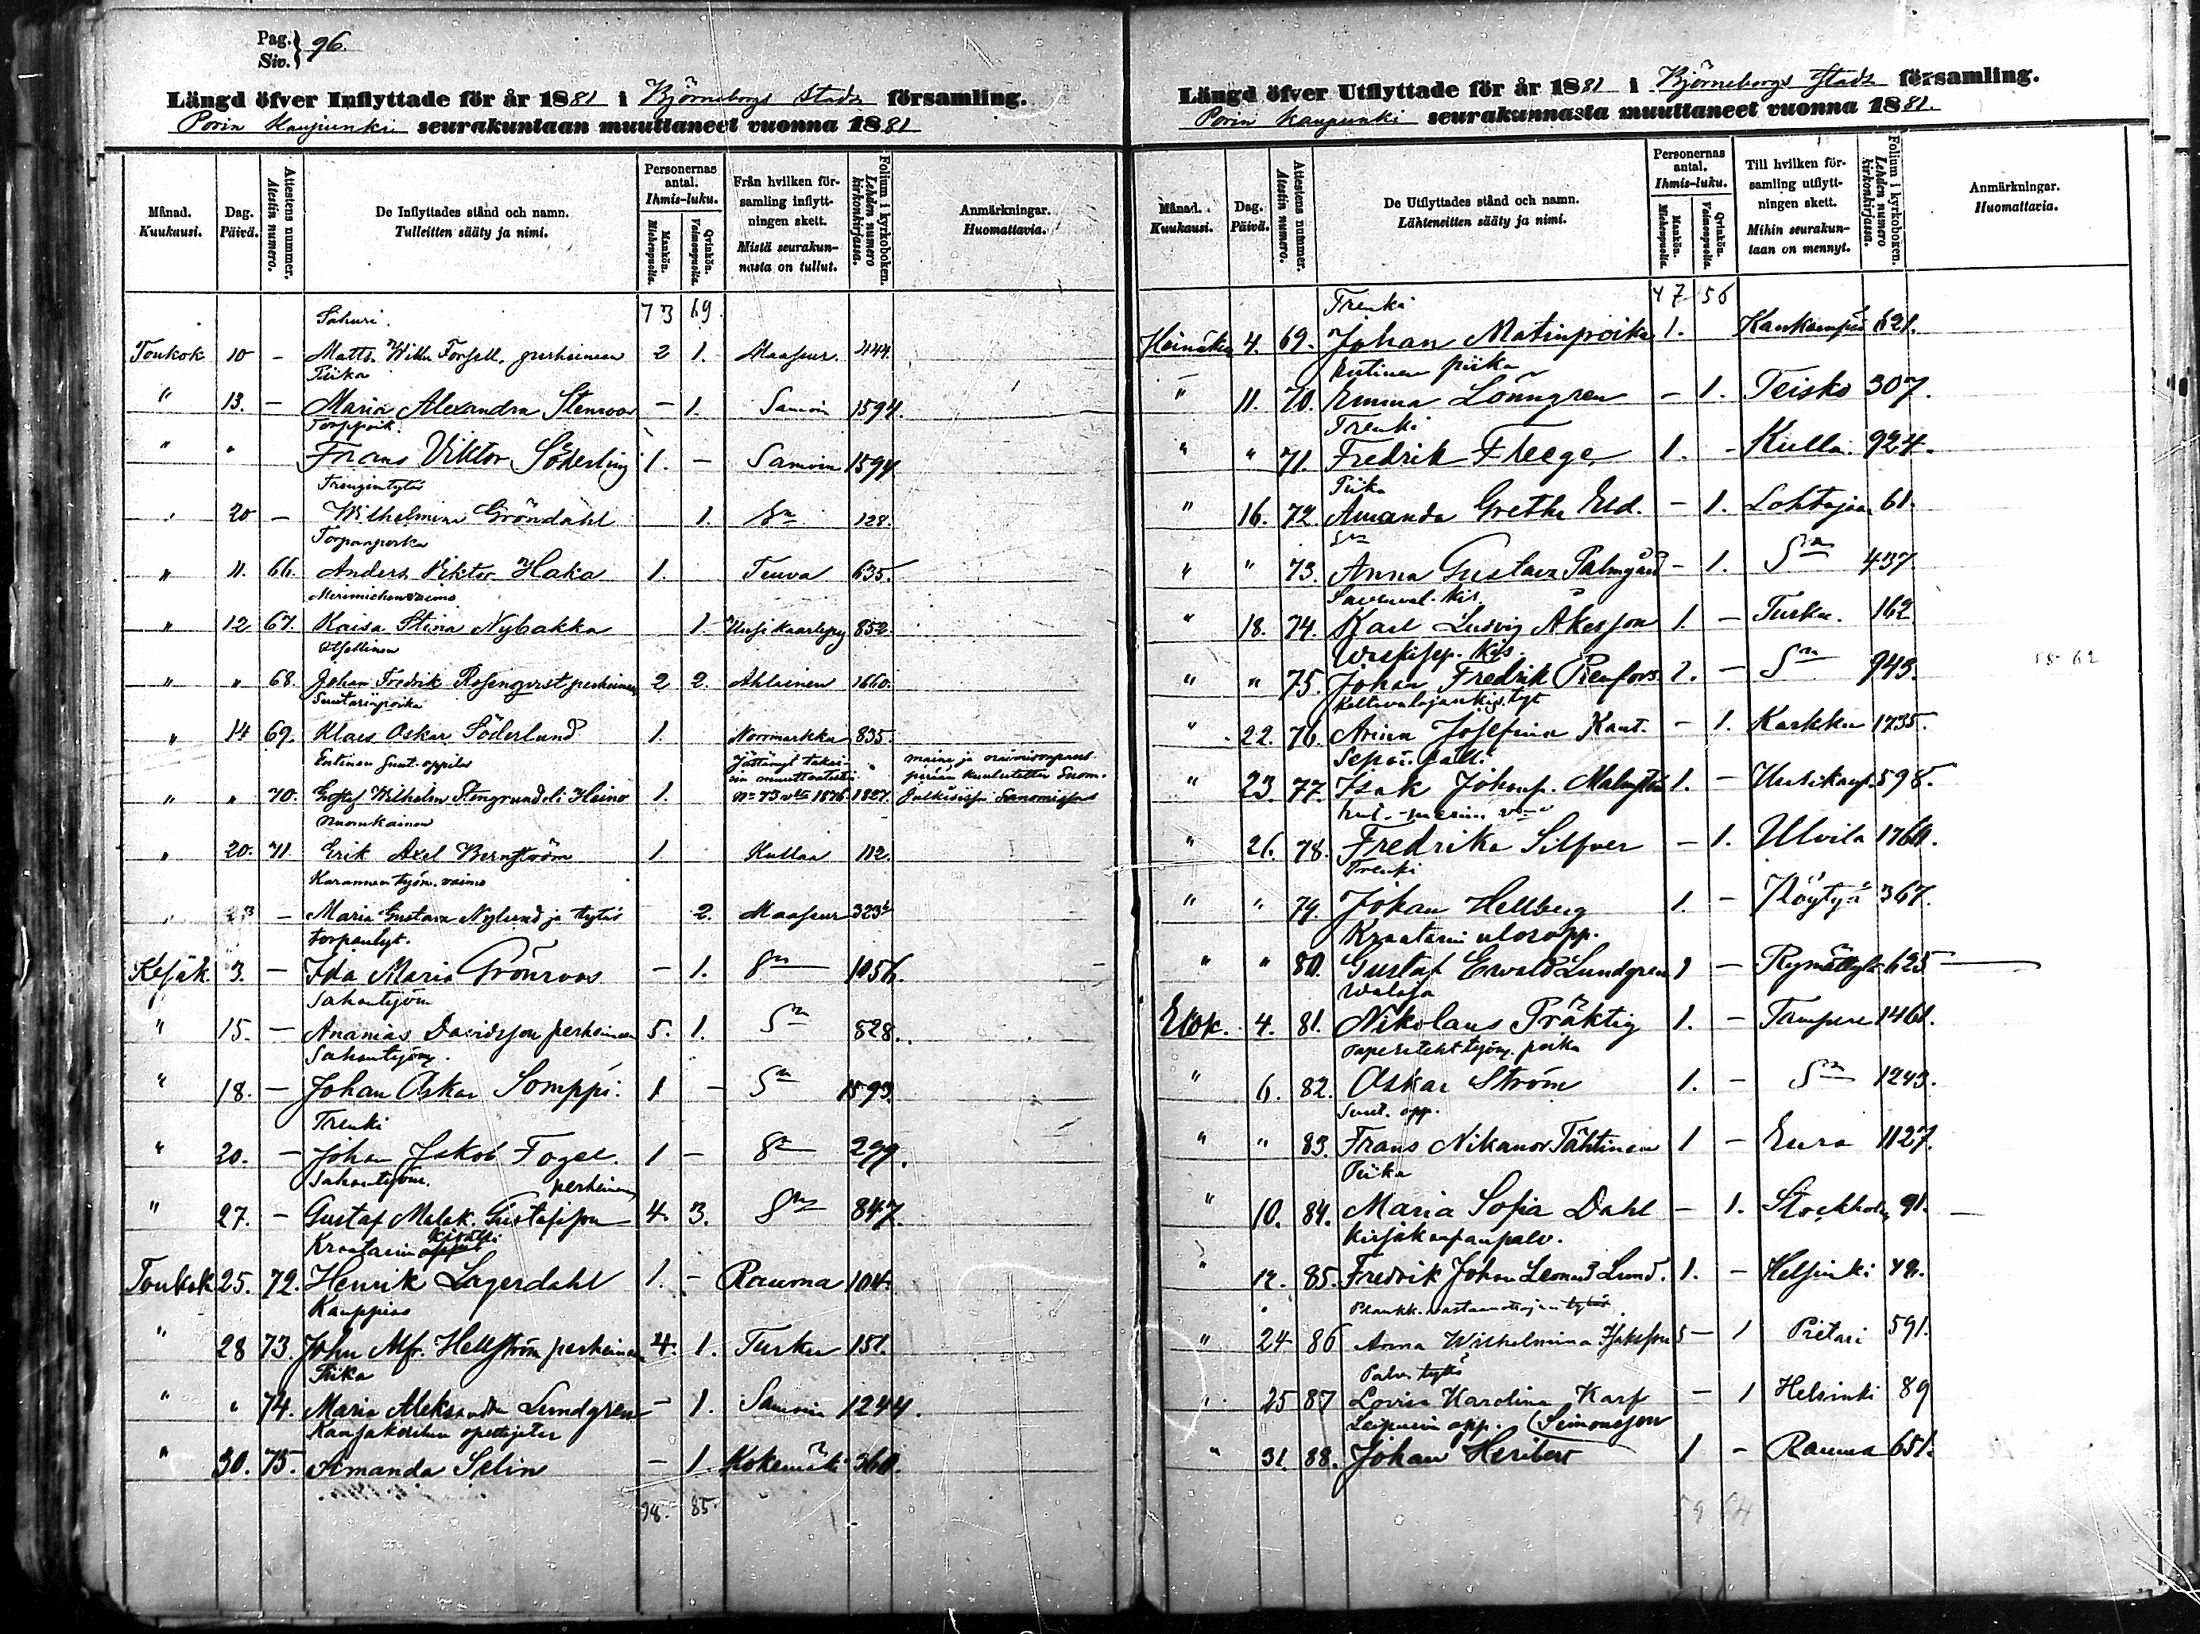 Pag. Siv. 96.
Längd öfver Inflyttade för år 1881 i Björneborgs Stads församling.
Porin Kaupunki seurakuntaan muuttaneet vuonna 1881
Månad. Kuukausi.
Dag. Päivä.
Attestens nummer. Atestin numero.
De Inflyttades stånd och namn. Tulleitten sääty ja nimi.
Personernas antal. Ihmis-luku.
Mankön. Miehenpuolia.
Qvinkön. Vaimonpuolia.
Från hvilken församling inflyttningen skett. Mistä seurakunnasta on tullut.
Folium i kyrkoboken. Lehden numero kirkonkirjassa.
Anmärkningar. Huomattavia.
73 69
Sahuri.
Toukok 10 - Matts Wilh. Forsell, perheineen 2 1. Maaseur. 444.
Piika
" 13. - Maria Alexandra Stenroos - 1. Samoin 1594.
Torppoik.
" " Frans Viktor Söderling 1. - Samoin 1594
Trengintytö
" 20 - Wilhelmina Gröndahl 1. Sn 128.
Torpanpoika
" 11. 66. Anders Viktor Haka 1. Teuva 635.
Merimiehenvaimo
" 12 67. Kaisa Stina Nybakka 1. Uusikaarlepy 852.
Itsellinen
" " 68. Johan Fredrik Rosenqvist perheineen 2 2. Ahlainen 1660.
Suutarinpoika
" 14 69. Klaes Oskar Söderlund 1. Norrmarkku 835.
Entinen suut. oppilas
" " 70. Gustaf Wilhelm Stengrund eli Heino 1. 1827.
Nuorukainen
" 20. 71 Erik Axel Bernström 1. Kullaa 112.
työm. vaimo
" 23 - Maria Gustava Nylund ja tytö 2. Maaseur 323
torpantyt.
Kesäk 3. - Ida Maria Grönroos - 1. Sn 1056.
Sahantyöm
" 15. - Ananias Davidsson perheineen 5. 1. Sn 828.
Sahantyöm.
" 18. - Johan Oskar Somppi. 1 - Sn 1593.
Trenki
" 20. - Johan Jakob Fogel. 1 - Sn 299.
Sahantyöm. perheineen
" 27. - Gustaf Malak. Gustafsson 4. 3. Sn 847.
Kraatarin kisälli
Toukok 25. 72. Henrik Lagerdahl 1. - Rauma 104.
Kauppias
" 28 73. John Alfr. Hellström perheineen 4. 1. Turku 151.
Piika
" " 74. Maria Aleksandra Lundgren - 1. Samoin 1244.
Kansakoulun opettajatar
" 30. 75. Amanda Selin - 1. Kokemäki 360.
98. 85.
Längd öfver Utflyttade för år 1881 i Björneborgs Stads församling.
Porin Kaupunki seurakunnasta muuttaneet vuonna 1881.
Månad. Kuukausi.
Dag. Päivä.
Attestens nummer. Atestin numero.
De Utflyttades stånd och namn. Lähteneitten sääty ja nimi.
Personernas antal. Ihmis-luku.
Mankön. Miehenpuolia.
Qvinkön. Vaimonpuolia.
Till hvilken församling utflyttningen skett. Mihin seurakuntaan on mennyt.
Folium i kyrkoboken. Lehden numero kirkonkirjassa.
Anmärkningar. Huomattavia.
47 56
Trenki
Heinäku 4. 69. Johan Matinpoika 1. Kankaanpää 621.
Entinen piika
" 11. 70. Emma Lönngren - 1. Teisko 307.
Trenki
" " 71. Fredrik Fleege 1. - Kulla. 924.
Piika
" 16. 72. Amanda Gretha Eld. - 1. Lohtaja 61.
Sn
" " 73. Anna Gustava Palmgård - 1. Sn 437
" 18. 74. Karl Ludvig Åkesson 1. - Turku. 162
58 62
" " 75. Johan Fredrik Renfors. 1. - Sn 943.
" 22. 76. Arina Josefina Kant. - 1. Karkku 1735.
" 23. 77. Isak Johanp. Malmström 1. - Uusikaup. 598.
" 26. 78. Fredrika Silfver - 1. Ulvila 1760.
Trenki
" " 79. Johan Hellberg 1. - Pöytyä 367.
Kraatarin ulosopp.
" " 80. Gustaf Ewald Lundgren 1 - Rymättylä 625
Walaja
Elok. 4. 81. Nikolaus Präktig 1. - Tampere 1461.
työm. poika
" 6. 82. Oskar Ström 1. - Sn 1243.
Suut. opp.
" " 83. Frans Nikanor Tähtinen 1 - Eura 1127.
Piika
" 10. 84. Maria Sofia Dahl - 1. Stockholm 91.
Kirjakaupanpalv.
" 12. 85. Fredrik Johan Leonard Lund. 1. - Helsinki 48.
Plankk. vastaanottajan tytö
" 24 86 Anna Wilhelmina Isaksson 5 - 1 Pietari 591.
Palv. tyttö
" 25 87 Lovisa Karolina Karf - 1 Helsinki 89
Leipurin opp. (Simonsson
" 31. 88. Johan Heribert 1 - Rauma 651.
59 64